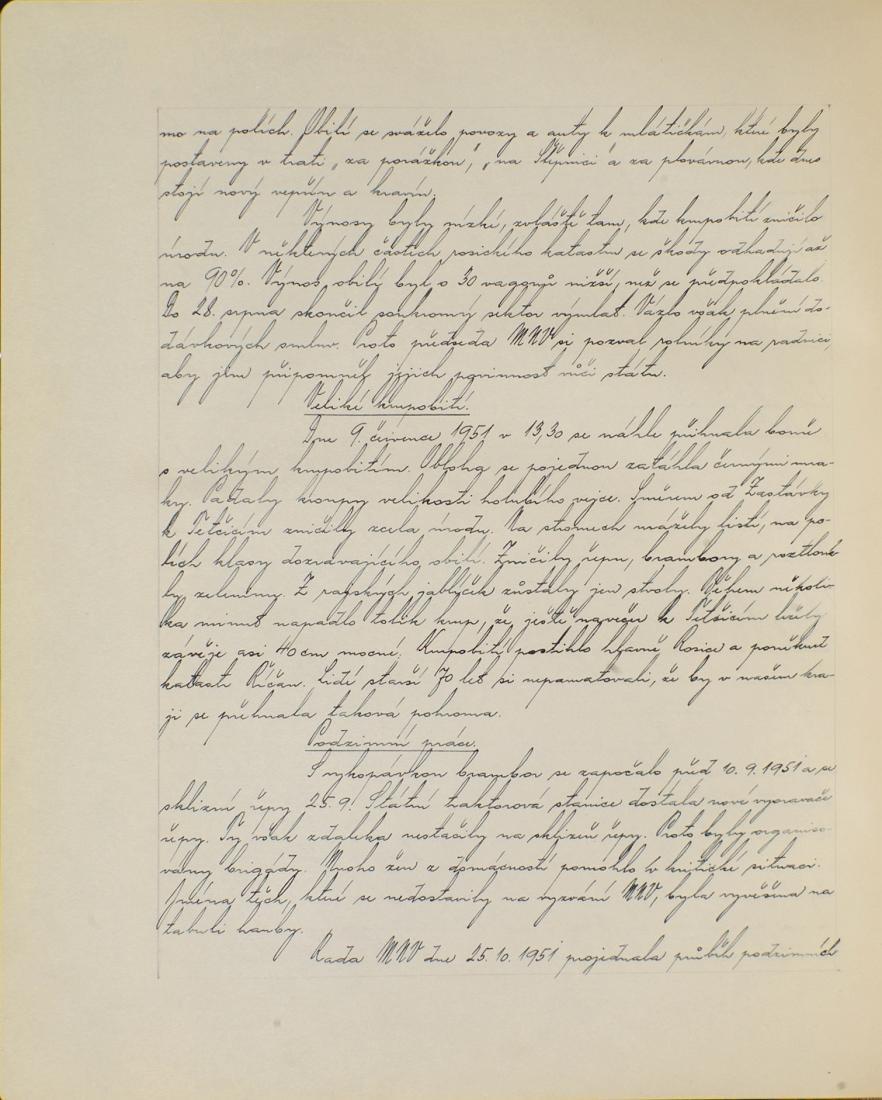 mo na polích. Obilí se sváželo povozy a auty k mlátičkám, které byly
postaveny v trati „za porážkou“, „na Štěpnici“ a za plovárnou, kde dnes
stojí nový vepřín a kravín.
Výnosy byly nízké, zvláště tam, kde krupobití zničilo
úrodu. V některých částech rosického katastru se škody odhadují až
na 90%. Výnos obilí byl o 30 vagonů nižší, než se předpokládalo.
Do 28. srpna skončil soukromý sektor výmlat. Vázlo však plnění do-
dávkových smluv. Proto předseda MNV si pozval rolníky na radnici,
aby jim připomněl jejich povinnost vůči státu.
Veliké krupobití.
Dne 9. července 1951 v 13,30 se náhle přihnala bouře
s velikým krupobitím. Obloha se pojednou zatáhla černými mra-
ky. Padaly kroupy velikosti holubího vejce. Směrem od Zastávky
k Tetčicím zničily zcela úrodu. Na stromech urážely listí, na po-
lích klasy dozrávajícího obilí. Zničily řepu, brambory a roztlouk-
ly zeleninu. Z rajských jablíček zůstaly jen stvoly. Během několi-
ka minut napadlo tolik krup, že ještě navečer k Tetčicím ležely
závěje asi 40 cm mocné. Krupobití postihlo hlavně Rosice a poněkud
katastr Říčan. Lidé starší 70 let si nepamatovali, že by v našem kra-
ji se přehnala taková pohroma.
Podzimní práce.
S vykopávkou brambor se započalo před 10. 9. 1951 a se
sklizní řepy 25. 9. Státní traktorová stanice dostala nové vyoravače
řepy. Ty však zdaleka nestačily na sklizeň řepy. Proto byly organiso-
vány brigády. Mnoho žen z domácností pomohlo v kritické situaci.
Jména těch, které se nedostavily na vyzvání MNV, byla vyvěšena na
tabuli hanby.
Rada MNV dne 25. 10. 1951 projednala průběh podzimních